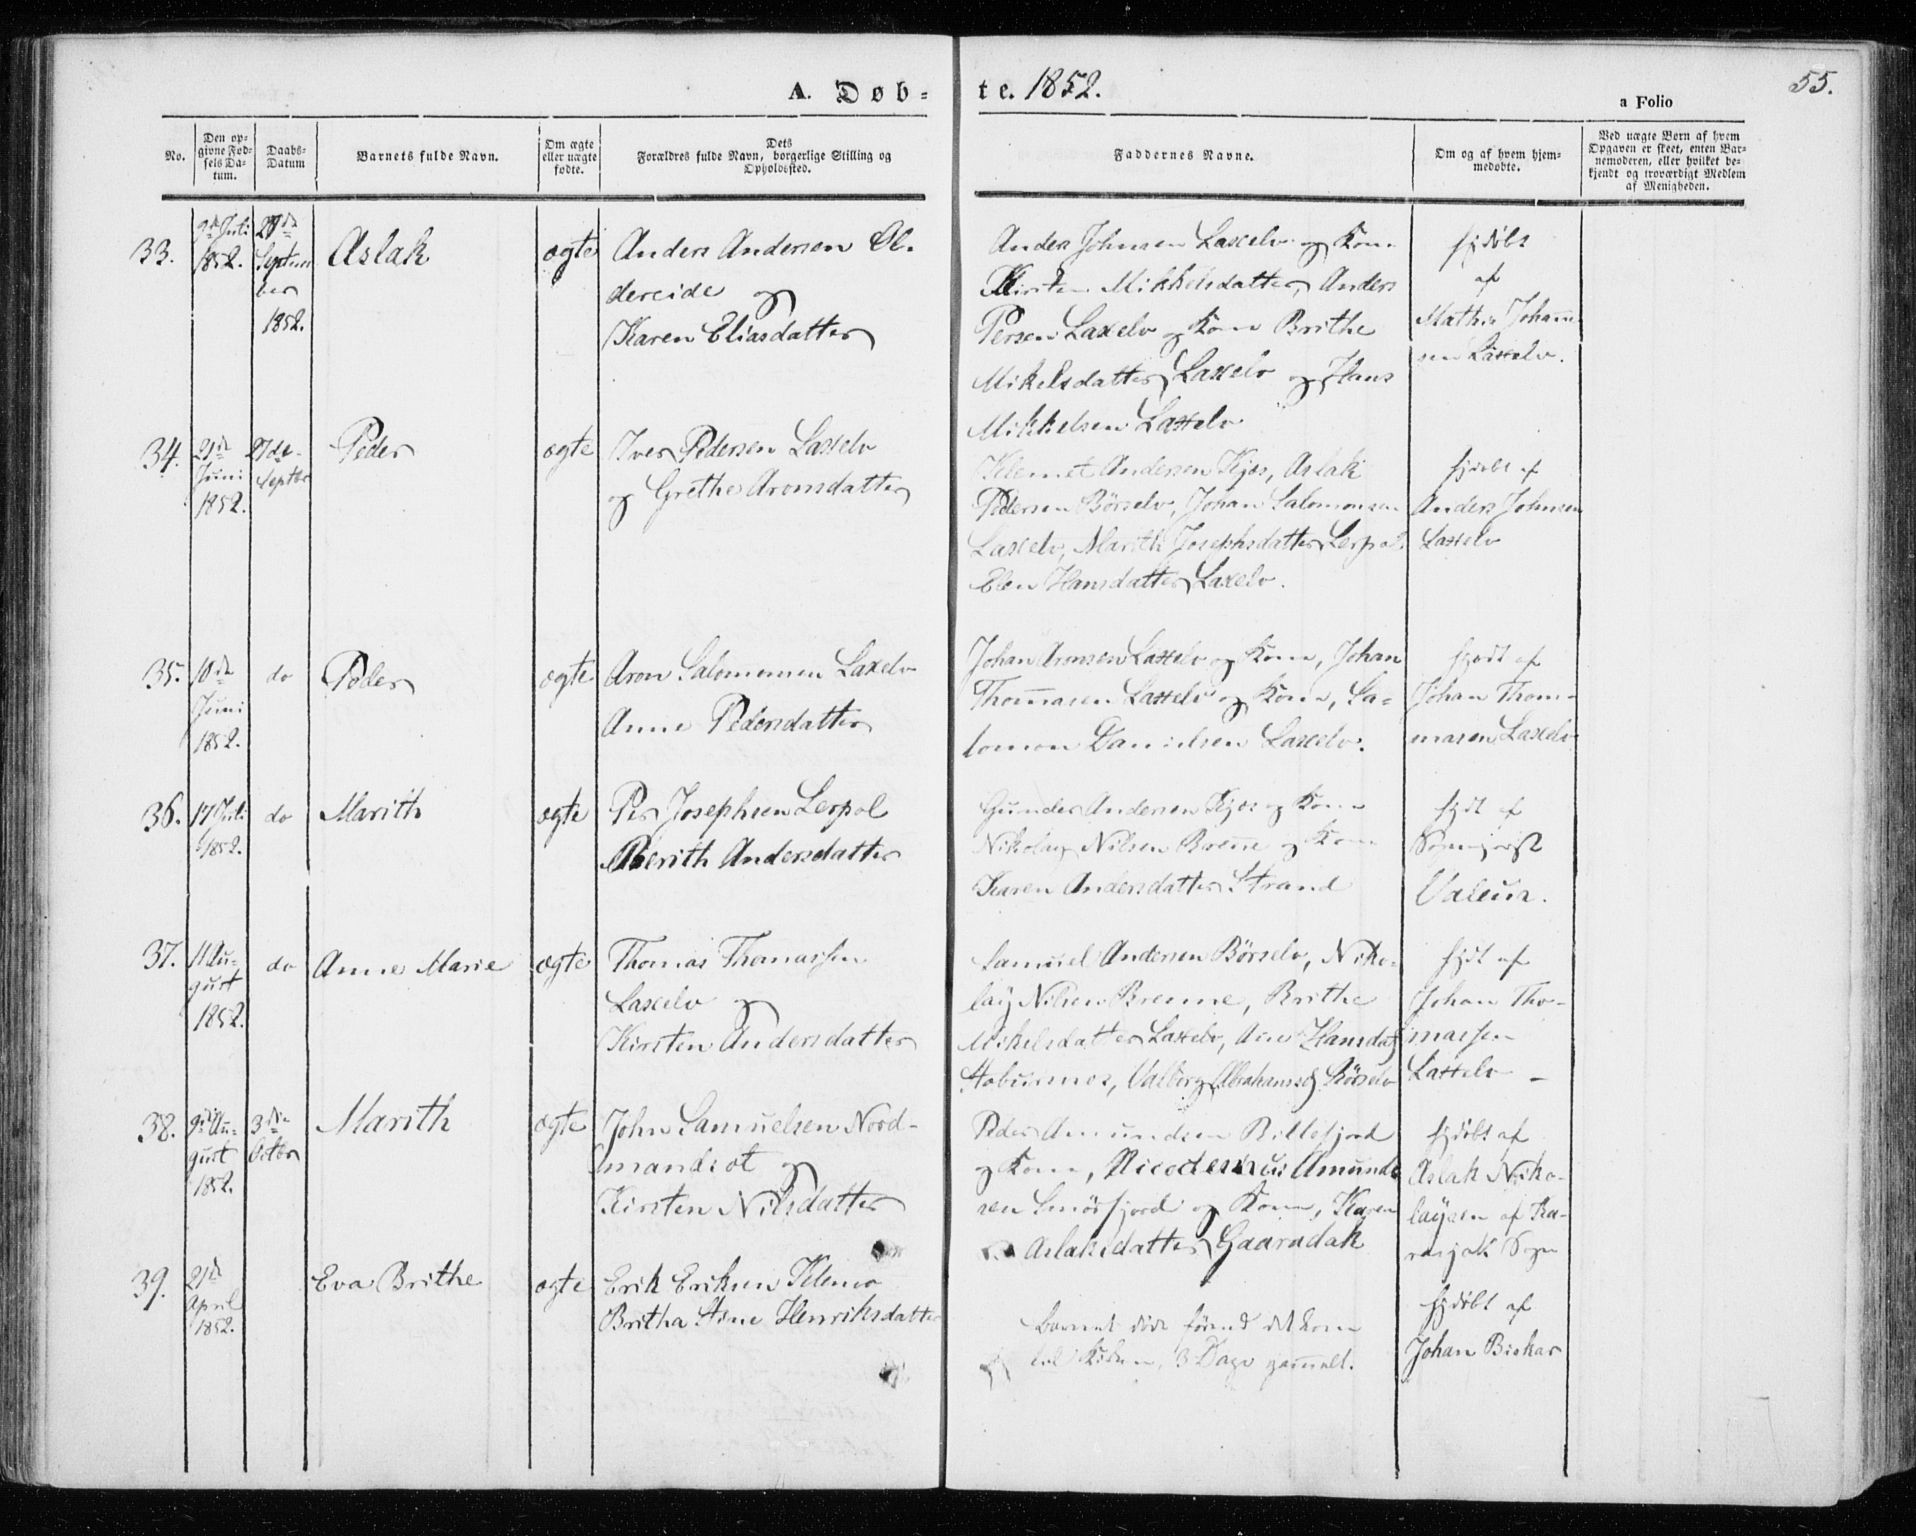 A. Døb-
te. 1852.
55.
a Folio
No.
Den op-
givne Fød-
sels Da-
tum.
Daabs-
Datum
Barnets fulde Navn.
Om ægte
eller uægte
fødte.
Dets
Forældres fulde Navn, borgerlige Stilling og
Opholdssted.
Faddernes Navne.
Om og af hvem hjem-
medøbte.
Ved uægte Børn af hvem
Opgaven er skeet, enten Bar-
nemoderen, eller hvilket be-
kjendt og troværdigt Medlem
af Menigheden.
33.
9de Juli
1852.
Septem
ber
1852.
Aslak
ægte
Anders Andersen Ol-
dereide og
Karen Eliasdatter
Anders Johnsen Laxelv og Kone
Kirsten Mikkelsdatter, Anders
Persen Laxelv og Kone Brithe
Mikelsdatter Laxelv og Hans
Mikkelsen Laxelv
hjdöbt
af
Mathis Johann-
sen Laxelv.
34.
21de
Juni
1852.
27de
Septbr
Peder
ægte
Iver Pedersen Laxelv
og Grethe Aronsdatter
Klemet Andersen Kjæs, Aslak
Pedersen Börselv, Johan Salomonsen
Laxelv, Marith Josephsdatter Lerpol
Elen Hansdatter Laxelv.
hjdöbt af
Anders Johnsen
Laxelv
35.
10de
Juni
1852.
do
Peder
ægte
Aron Salomonsen Laxelv
Anne Pedersdatter
Johan Aronsen Laxelv og Kone, Johan
Thomasen Laxelv og Kone, Sa-
lomon Danielsen Laxelv.
hjdöt af
Johan Thom-
masen Laxelv
36.
17 Juli
1852.
do
Marith
ægte
Per Josephsen Lerpol
Berith Andersdatter
Gunder Andersen Kjæs og Kone
Nikolay Nilsen Brenne og Kone
Karen Andersdatter Strand
hjdt af
Sognepræst
Valeur.
37.
11 Au-
gust
1852.
do
Anne Marie
ægte
Thomas Thomassen
Laxelv og
Kirsten Andersdatter
Samuel Andersen Börselv, Niko-
lay Nilsen Brenne, Brithe
Mikelsdatter Laxelv, Ane Hansdat
Valborg Abrahamsd Börselv
hjdt af
Johan Tho-
massen
Laxelv
38.
9de Au-
gust
1852.
3die
Octbr
Marith
ægte
John Samuelsen Nord-
mandset og
Kirsten Nilsdatter
Peder Amundsen Billefjord
og Kone, Nicodemus Amund-
sen Smörfjord og Kone, Karen
Aslaksdatter Gaaradak
hjdöbt af
Aslak Niko-
laysen af Ka-
rasjok Sogn
39.
21de
April
1852.
Eva Brithe
ægte
Erik Eriksen Klemo
Britha Stine Henriksdatter
Barnet döde förend det kom
til Kirken, 3 Dage gammelt.
hjdöbt af
Johan Biskar